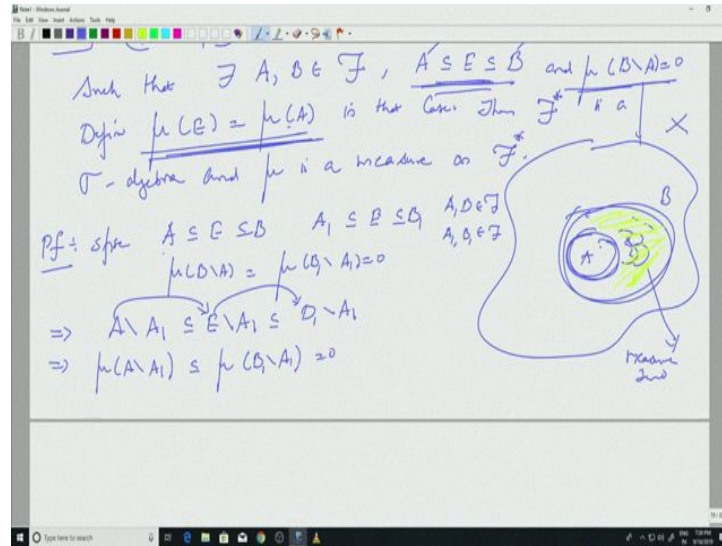 Note1 - Windows Journal
File Edit View Insert Actions Tools Help
Such that ∃ A, B ∈ F, A ⊆ E ⊆ B and μ(B\A)=0
Define μ(E) = μ(A) in that Case. Then F* is a
σ-algebra and μ is a measure on F*.
X
B
A
measure
zero
Pf: spse A ⊆ E ⊆ B A₁ ⊆ E ⊆ B₁ A,B∈F
A₁,B₁∈F
μ(B\A) = μ(B₁\A₁)=0
⇒ A\A₁ ⊆ E\A₁ ⊆ B₁\A₁
⇒ μ(A\A₁) ≤ μ(B₁\A₁) =0
Type here to search
7:30 PM